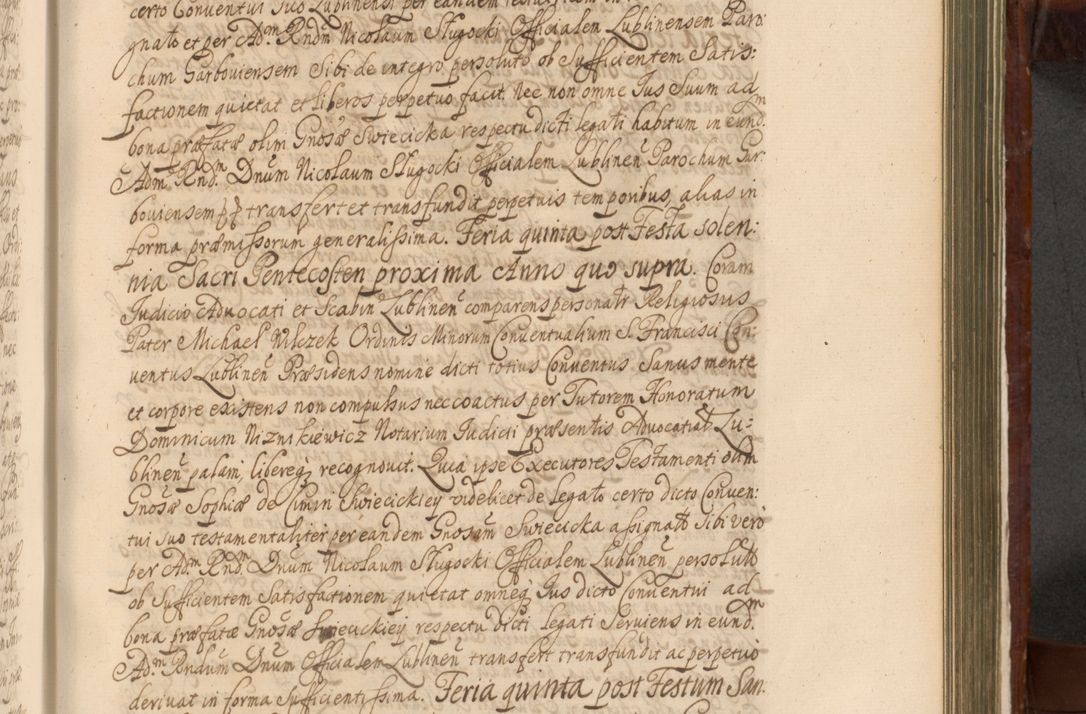 certo Conventui suo Lublinensi per eandem
gnato et per Adm Rndm Nicolaum Sługocki Officialem Lublinensem Paro:
chum Garboviensem sibi de integro persoluto ob Sufficientem Satis:
factionem quietat et liberos perpetuo facit. Nec non omne Ius Suum ad
bona præfatæ olim Gnosæ Swiecicka respectu dicti legati habitum in eundm
Adm Rndm Dnum Nicolaum Sługocki Officialem Lublinen Parochum Gar:
boviensem transfert et transfundit perpetuis temporibus, alias in
forma præmissorum generalissima. Feria quinta post Festa solen:
nia Sacri Pentecosten proxima Anno quo supra. Coram
Iudicio Advocati et Scabin Lublinen comparens personalr Religiosus
Pater Michael Wilczek Ordinis Minorum Conventualium S. Francisci Con:
ventus Lublinen Præsidens nomine dicti totius Conventus Sanus mente
et corpore existens non compulsus nec coactus per Tutorem Honoratum
Dominicum Niznikiewicz Notarium Iudicii præsentis Advocatial Lu:
blinen palam, libereq recognovit. Quia ipse Executores Testamenti olim
Gnosæ Sophiæ de Swiecickiey videlicet de legato certo dicto Conven:
tui suo testamentaliter per eandem Gnosam Swiecicka assignato Sibi vero
per Adm Rndm Dnum Nicolaum Sługocki Officialem Lublinen persoluto
ob Sufficientem Satisfactionem quietat omneq Ius dicto Conventui ad
bona præfatæ Gnosæ Swiecickiey respectu dicti legati Serviens in eundm
Adm Rndum Dnum Officialem Lublinen transfert transfundit ac perpetuo
derivat in forma Sufficientissima. Feria quinta post Festum San: